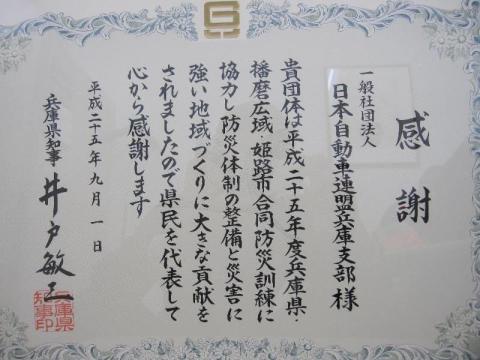 感謝
一般社団法人
日本自動車連盟兵庫支部様
貴団体は平成二十五年度兵庫県・
播磨広域・姫路市合同防災訓練に
協力し防災体制の整備と災害に
強い地域づくりに大きな貢献を
されましたので県民を代表して
心から感謝します
平成二十五年九月一日
兵庫県知事 井戸敏三
兵庫県
知事印